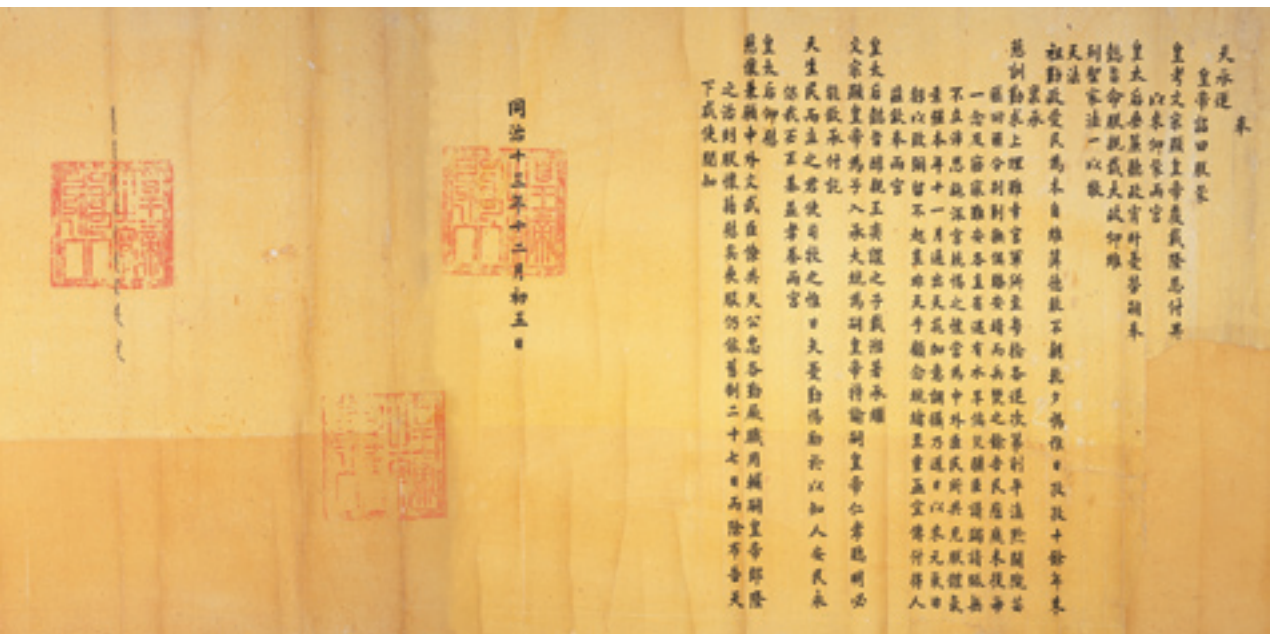 奉
天承運
皇帝詔曰朕蒙
皇考文宗顯皇帝覆載隆恩付畀
以來仰蒙兩宮
皇太后垂簾聽政宵旰憂勞嗣奉
懿旨命朕親裁大政仰維
列聖家法一以敬
天法
祖勤政愛民為本自維薄德敢不朝乾夕惕惟日孜孜十餘年來
稟承
慈訓勤求上理雖幸官軍所至粵捻各逆次第削平滇黔關隴苗
匪回亂分別剿撫俱臻安靖而兵燹之餘吾民瘡痍未復每
一念及寤寐難安各直省遇有水旱偏災疆臣請蠲請賑無
不立沛恩施深宮兢惕之懷當為中外臣民所共見朕體氣
素強本年十一月適出天花加意調攝乃邇日以來元氣日
虧以致彌留不起豈非天乎顧念統緒至重亟宜傳付得人
茲欽奉兩宮
皇太后懿旨醇親王奕譞之子載湉著承繼
文宗顯皇帝為子入承大統為嗣皇帝特諭嗣皇帝仁孝聰明必
能欽承付託
天生民而立之君使司牧之惟日矢憂勤惕勵於以知人安民永
保我丕丕基並孝養兩宮
皇太后仰慰
慈懷兼願中外文武臣僚共矢公忠各勤厥職用輔嗣皇帝郅隆
之治則朕懷藉慰矣喪服仍依舊制二十七日而除布告天
下咸使聞知
同治十三年十二月初五日
皇帝之寶
皇帝之寶
皇帝之寶